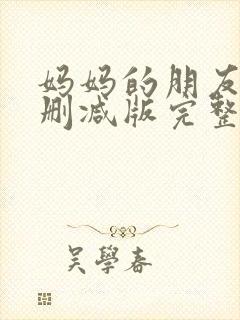 妈妈的朋友
删减版完整
吴學春